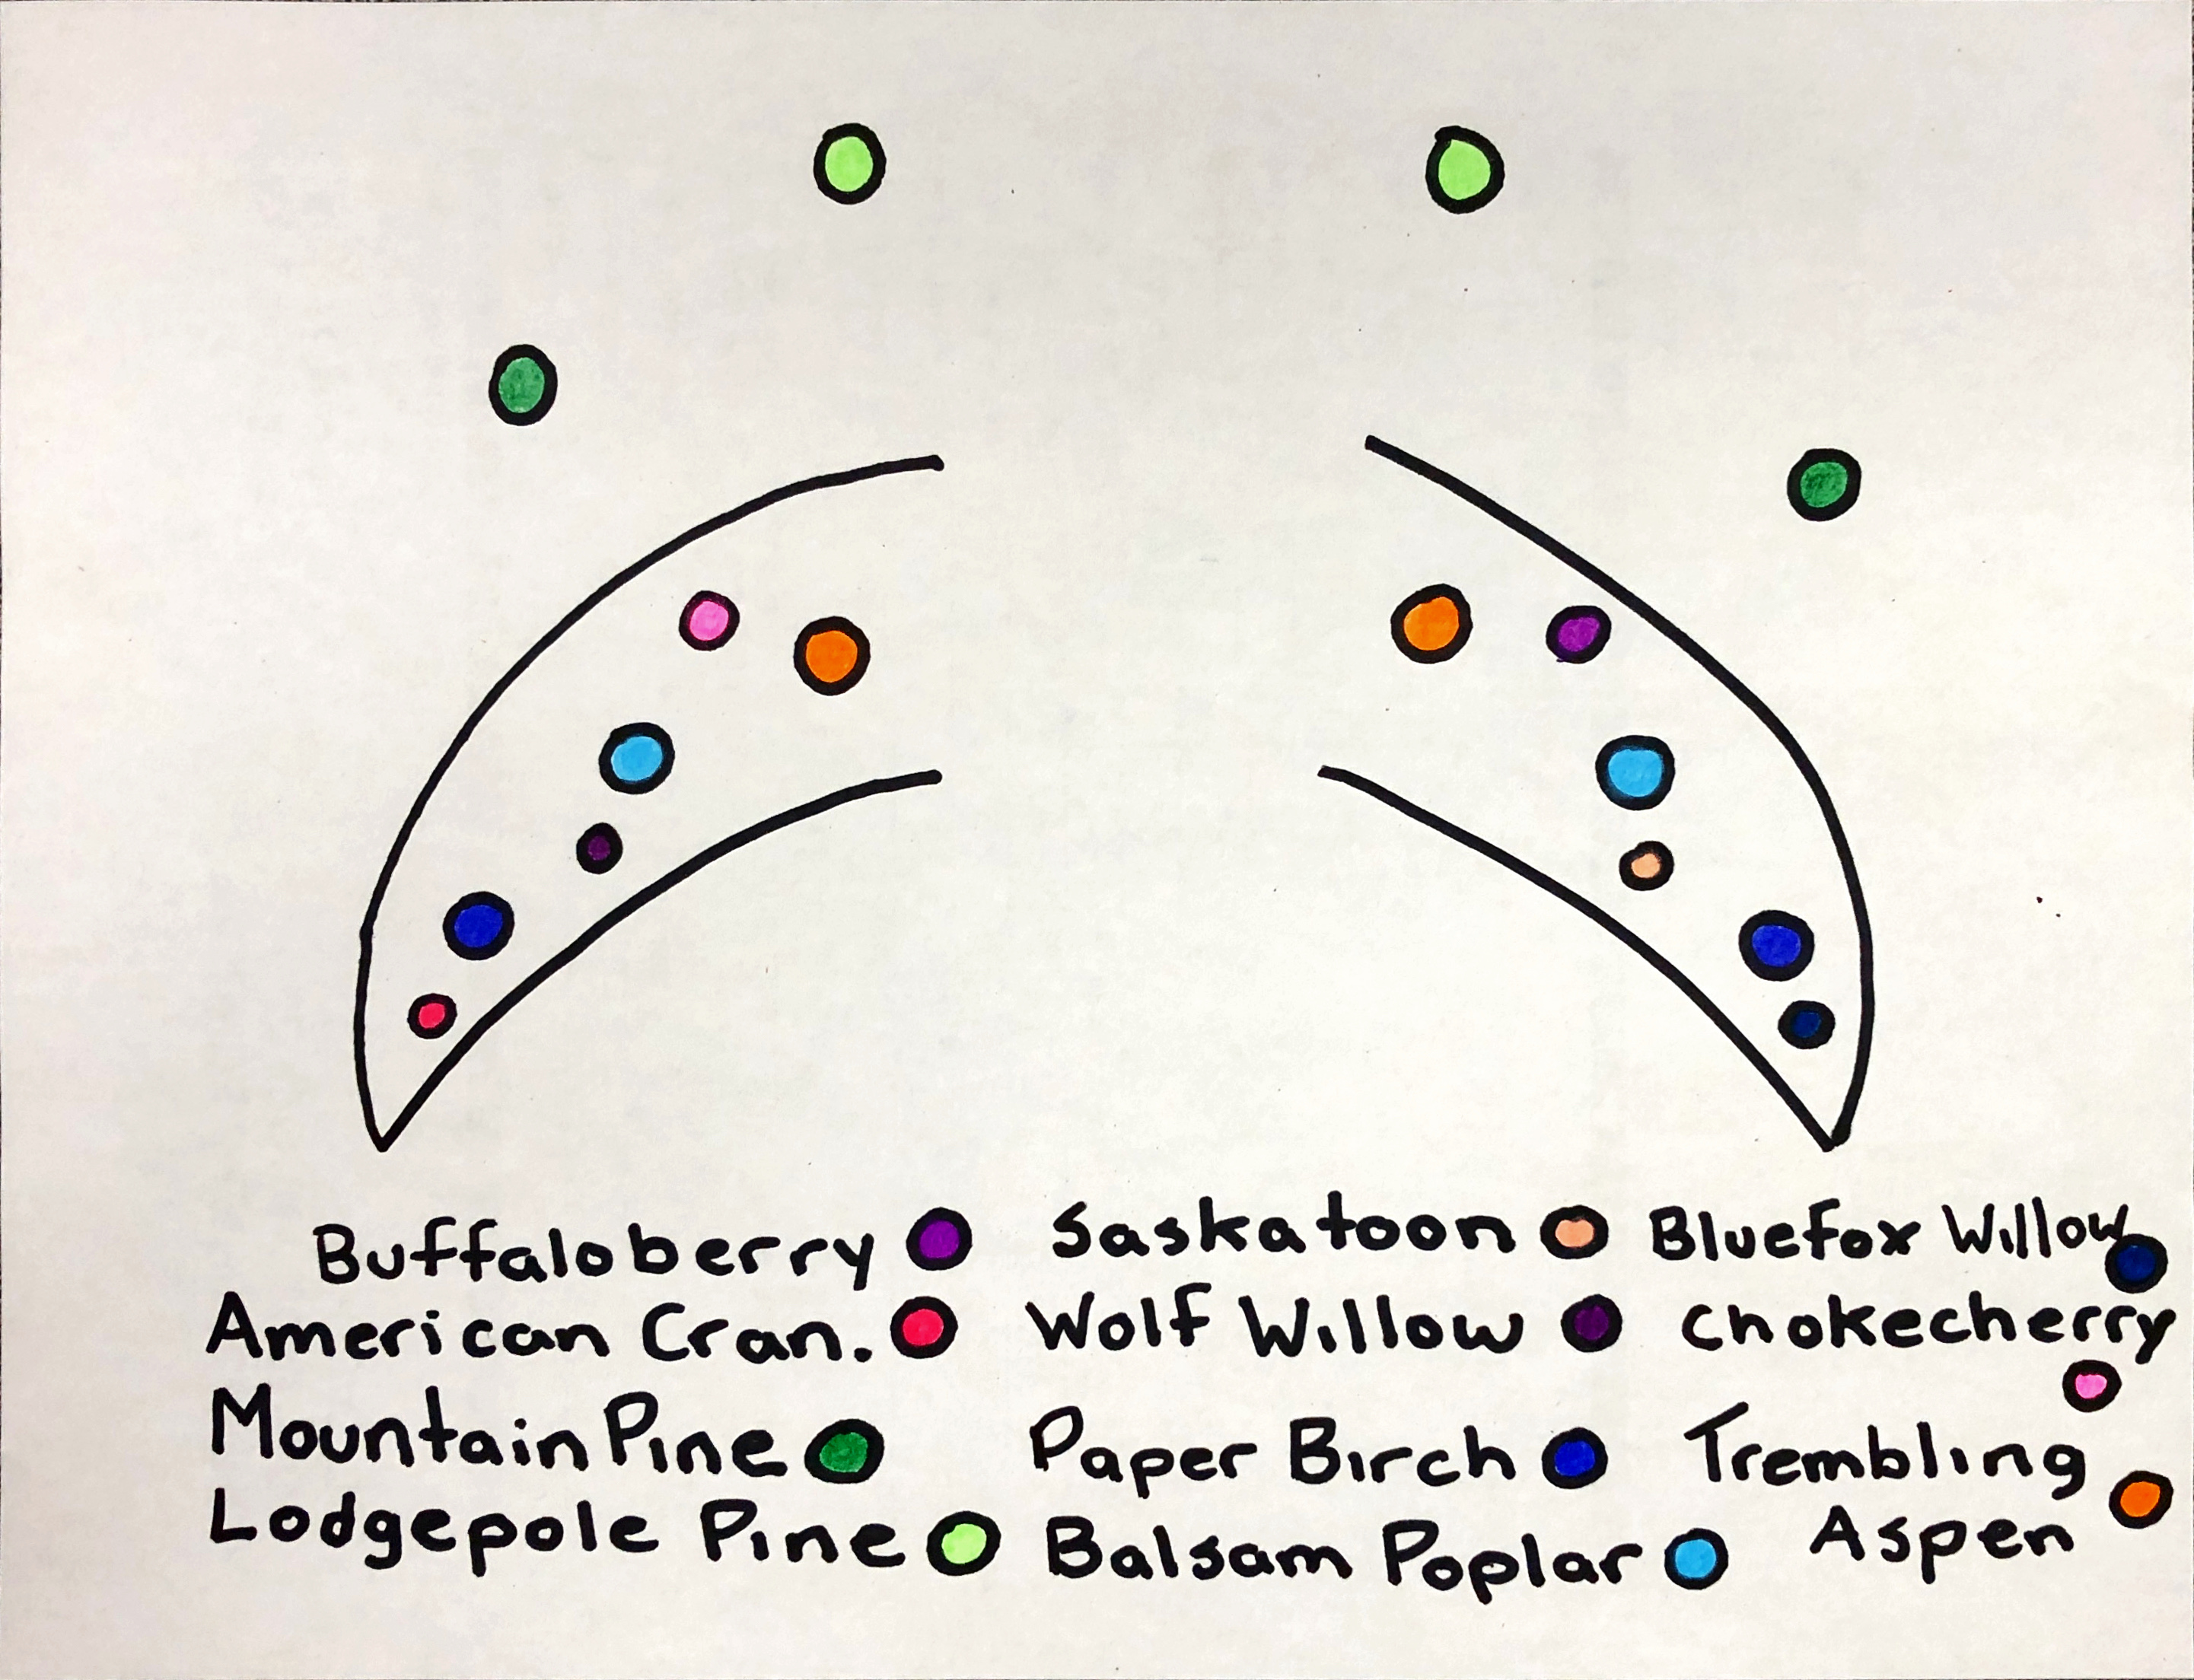 Buffaloberry Saskatoon Bluefox Willow
American Cran. Wolf Willow Chokecherry
Mountain Pine Paper Birch Trembling
Lodgepole Pine Balsam Poplar Aspen